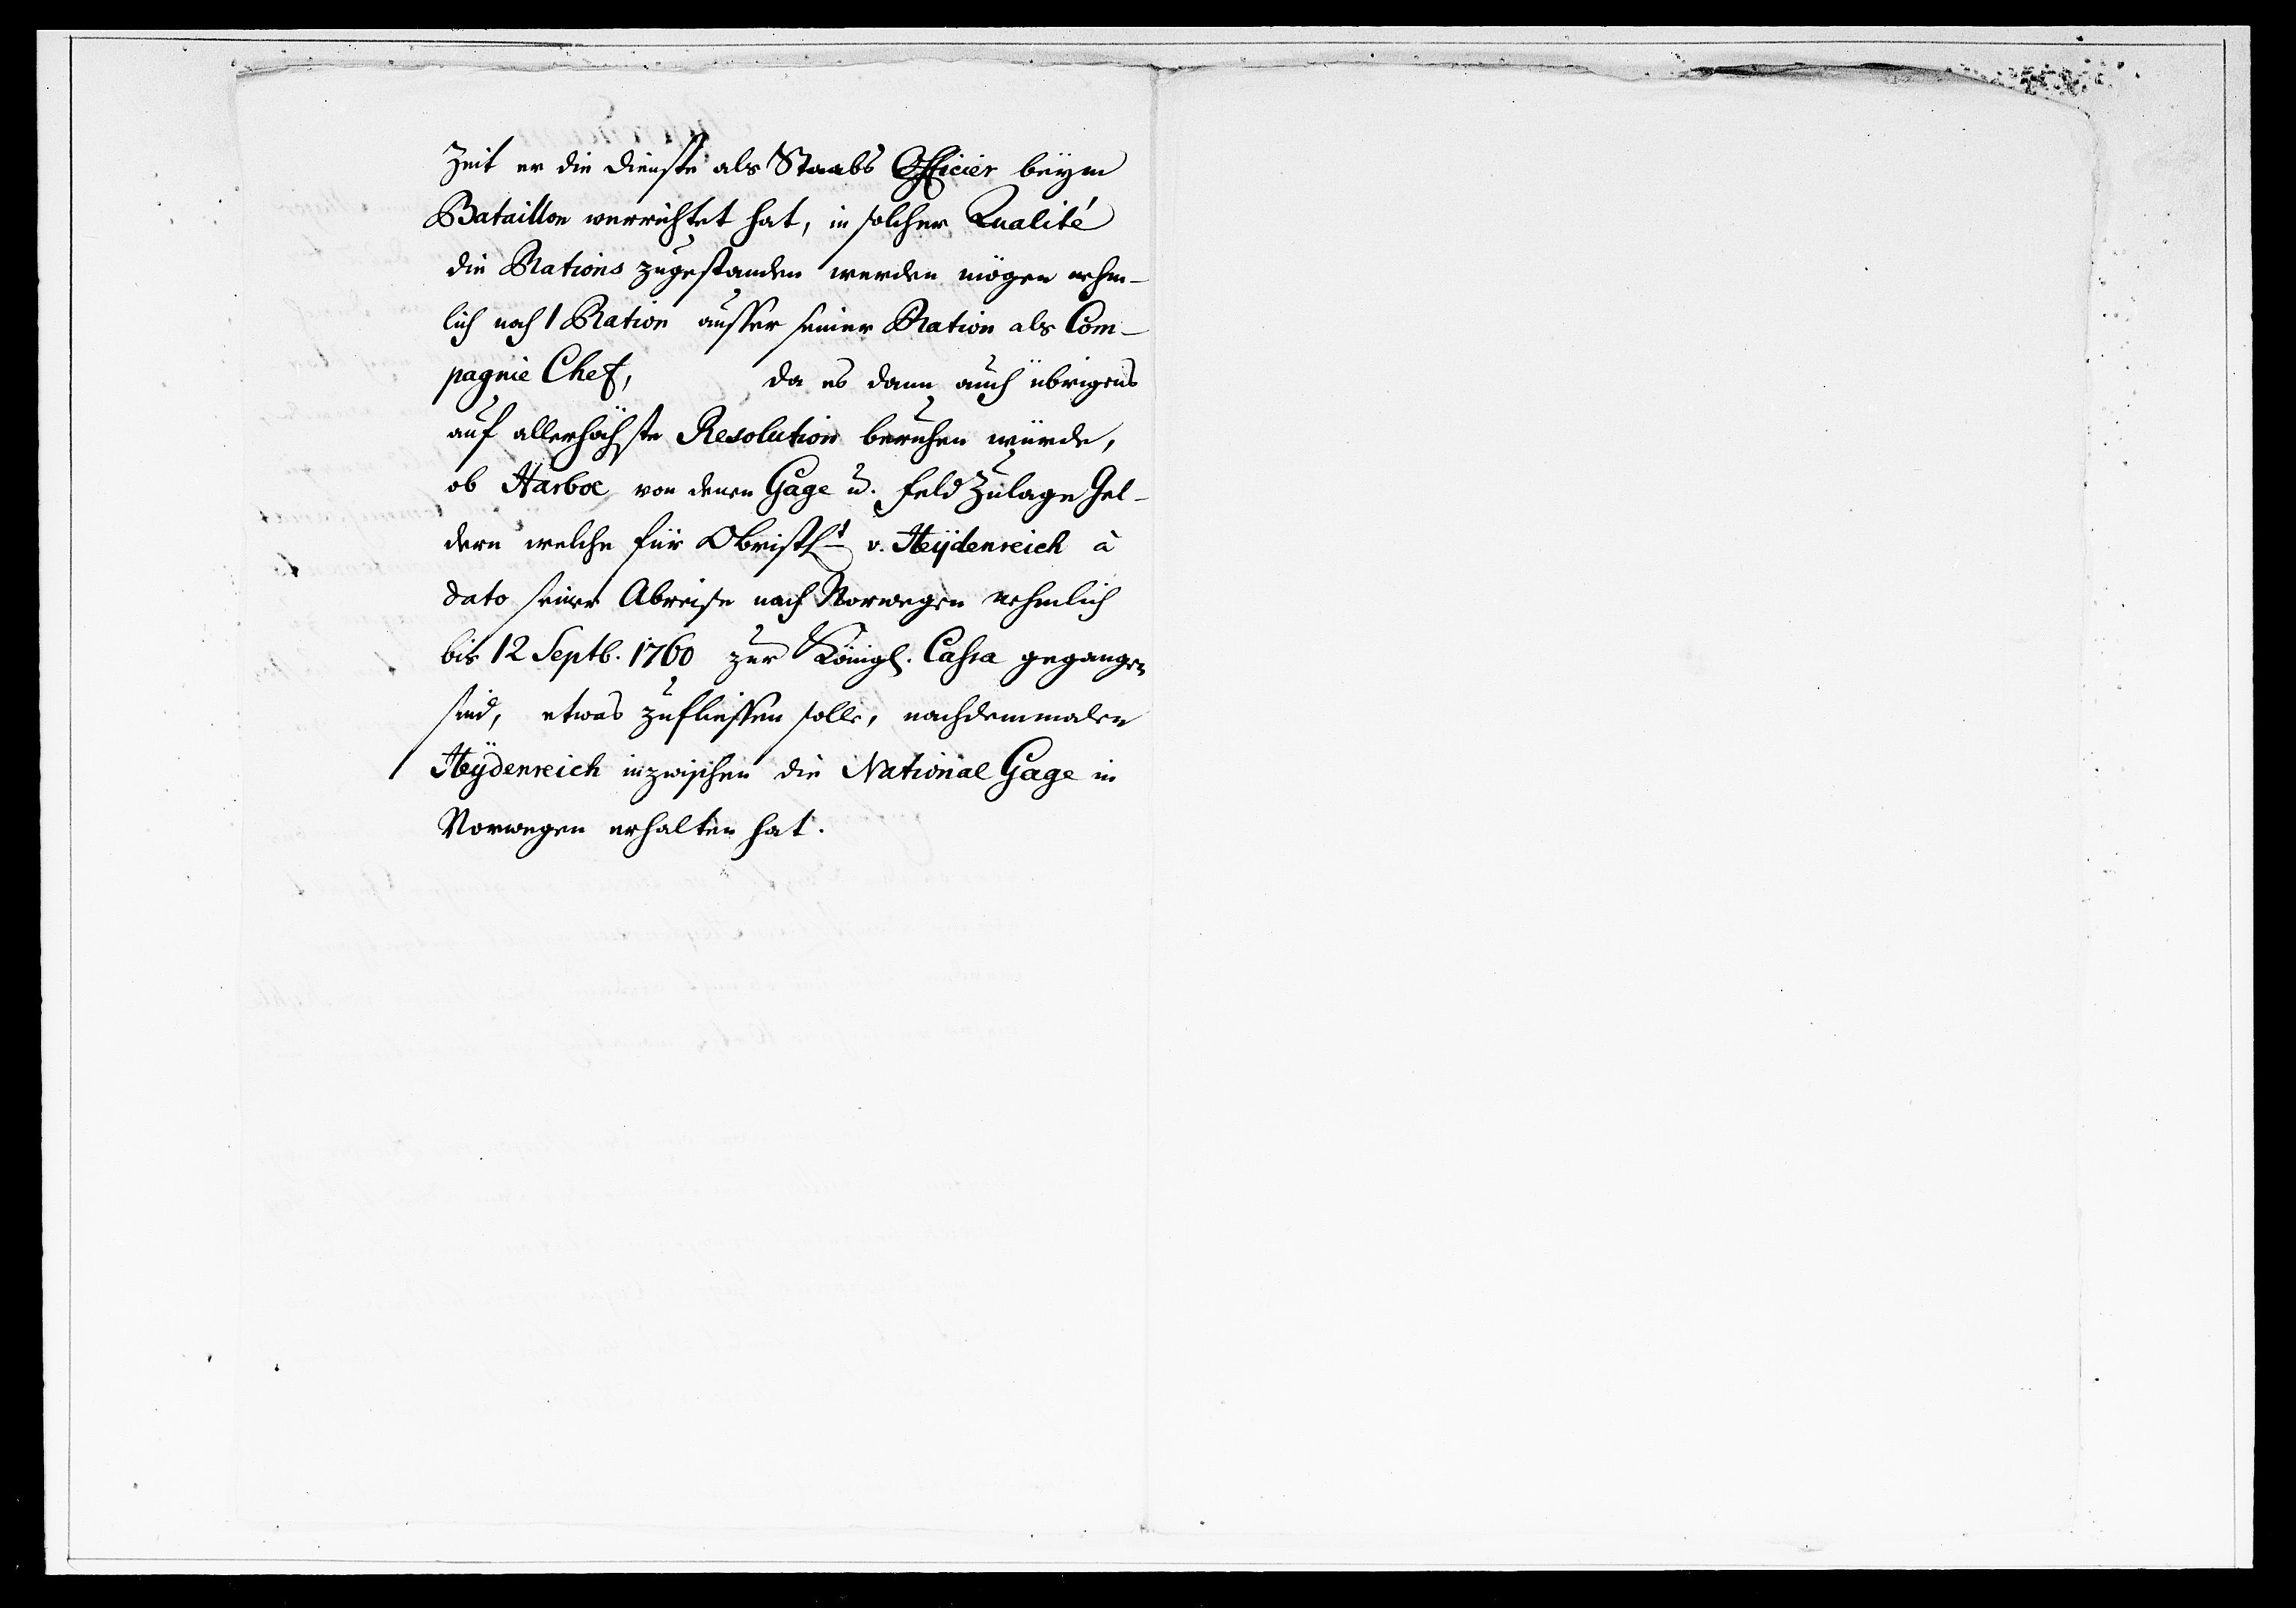 Zeit er die Dienste als Staabs Officier beÿm
Bataillon verrichtet hat, in solcher Qualité
die Rations zugestanden werden mögen nehm-
lich noch 1 Ration ausser seiner Ration als Com-
pagnie Chef, da es dann auch übrigens
auf allerhöchste Resolution beruhen würde,
ob Harboe von denen Gage u. Feld Zulage Gel-
dern welche für Obristlt v. Heÿdenreich à
dato seiner Abreise nach Norwegen nehmlich
bis 12 Septb. 1760 zur Königl. Cassa gegangen
sind, etwas zufliessen solle, nachdemmalen
Heÿdenreich inzwischen die National Gage in
Norwegen erhalten hat.